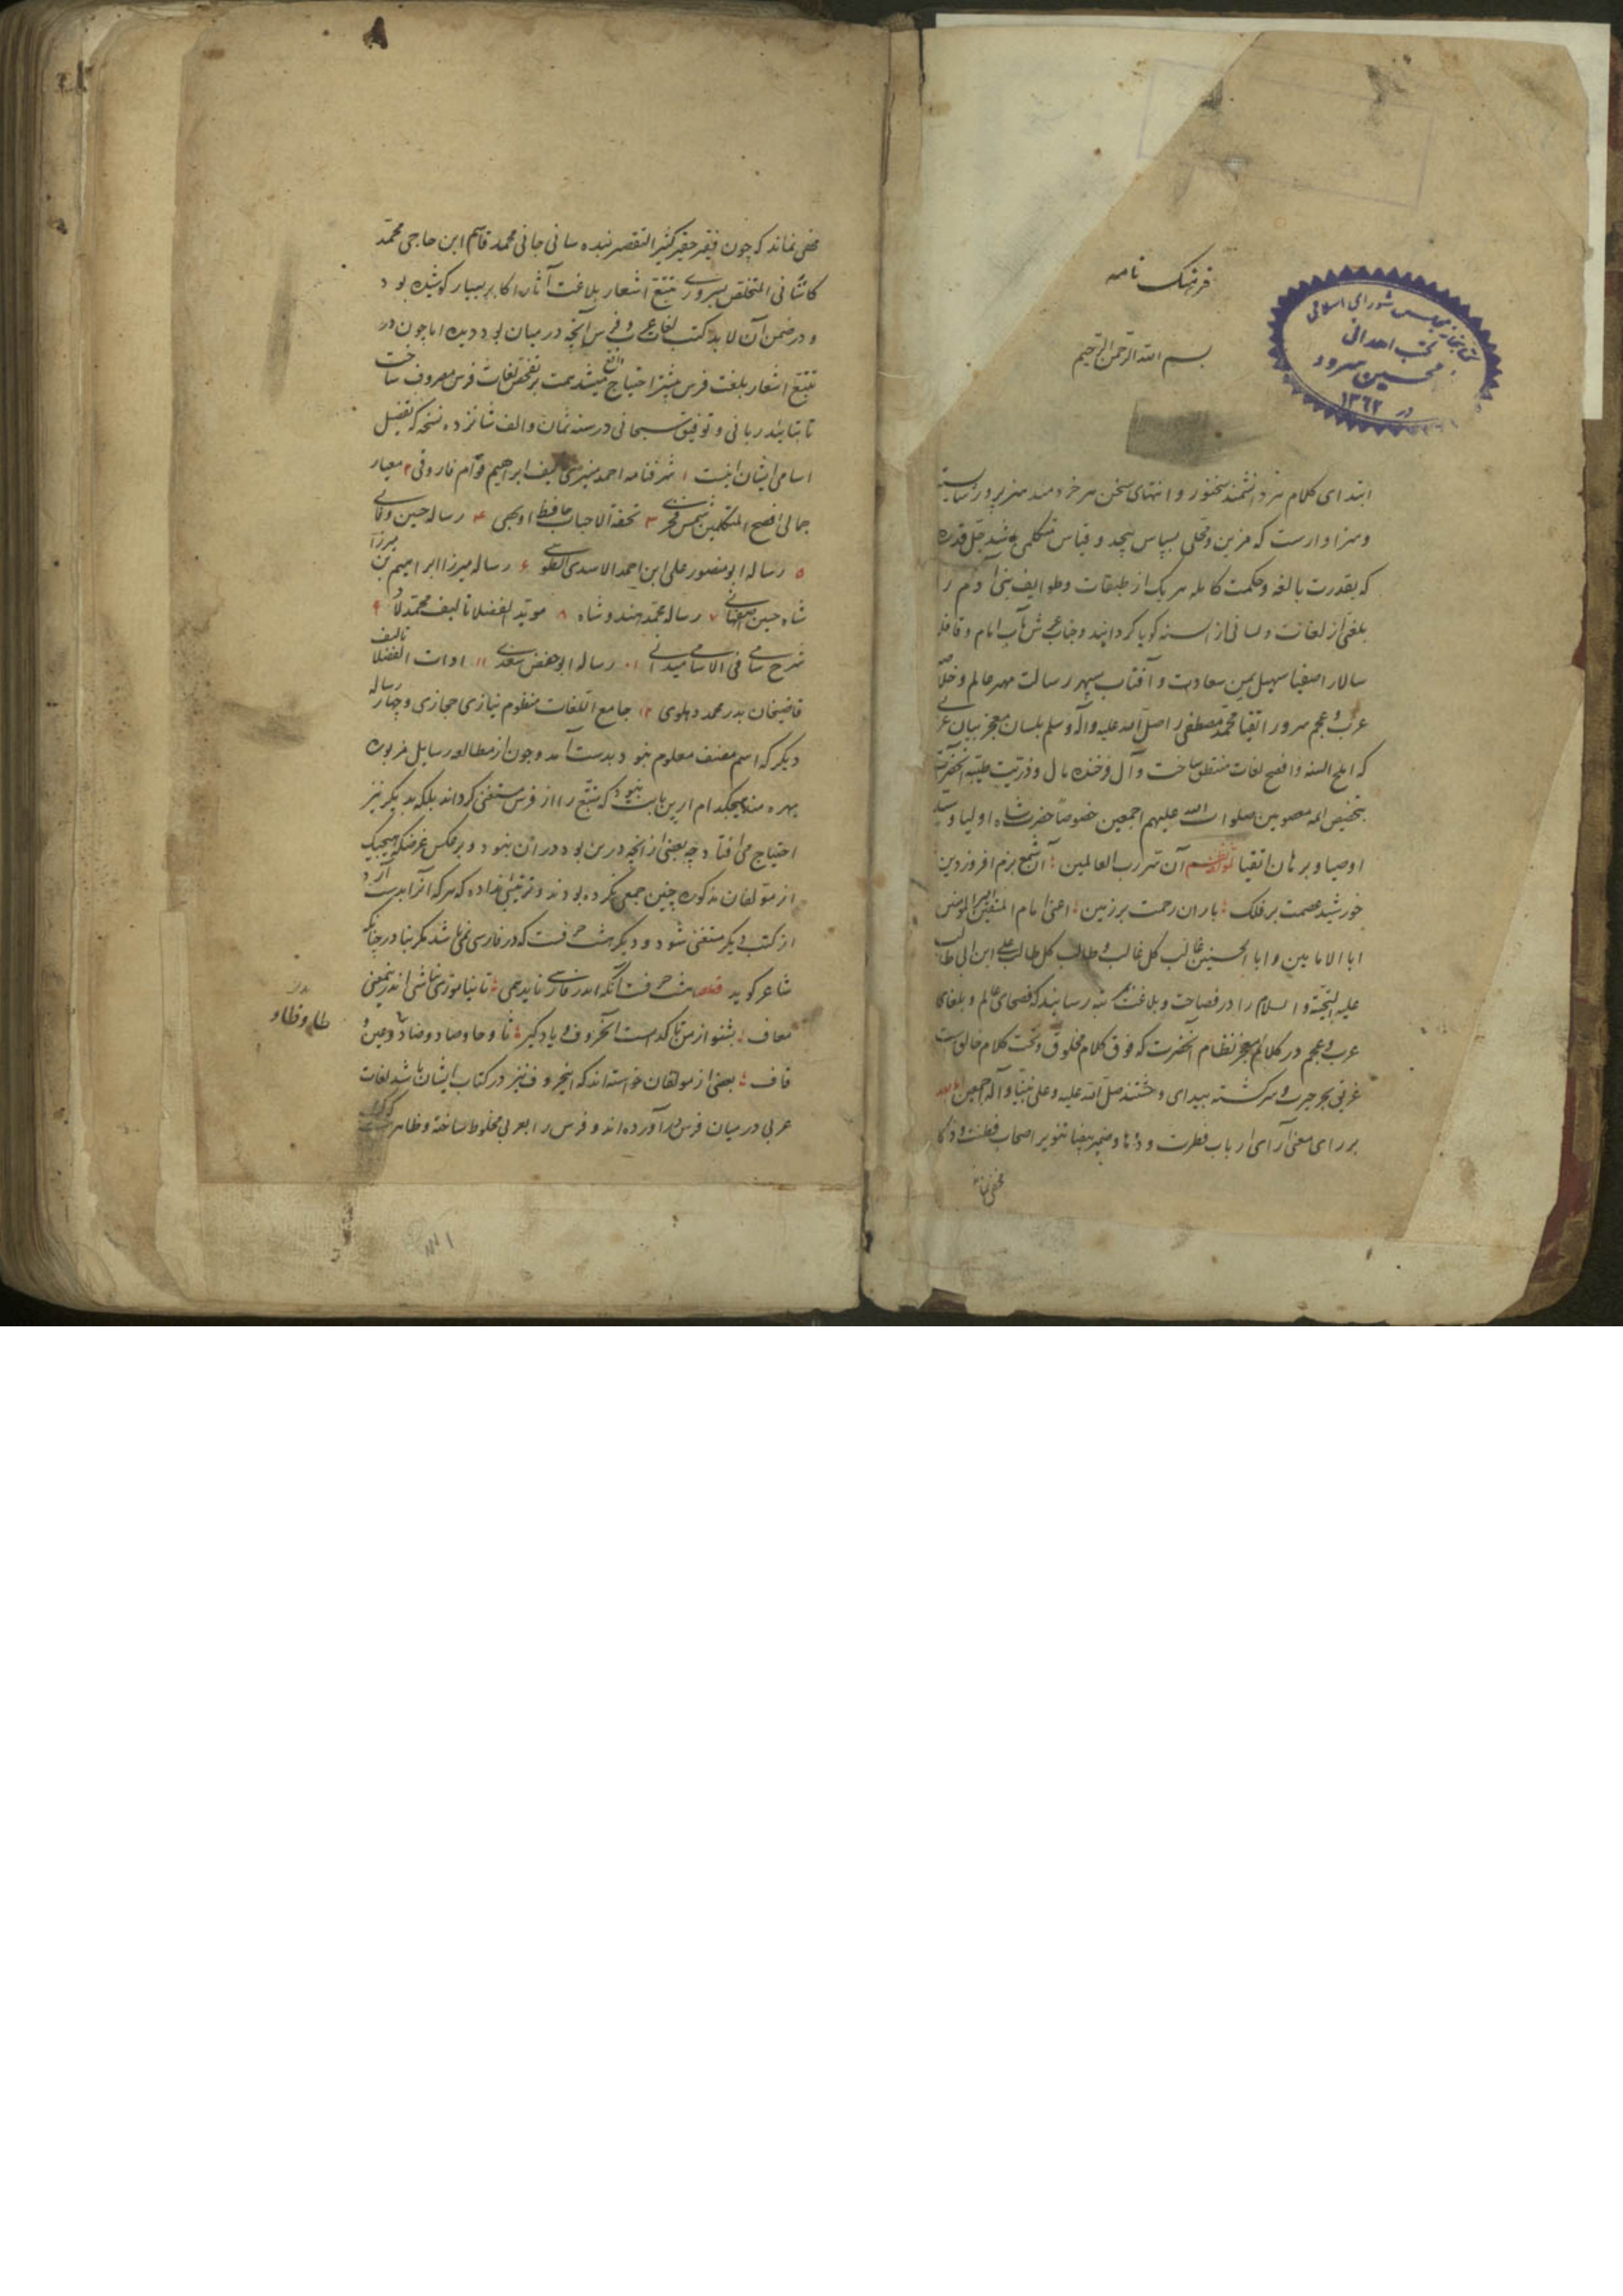 فرهنگ نامه
بسم الله الرحمن الرحیم
کتابخانه مجلس شورای اسلامی
کتب اهدائی
محسین سرود
در ۱۳۶۲
ابتدای کلام هر دانشمند سخنور و انتهای سخن هر خردمند هنرپرور شایسته
و سزاوارست که مزین و محلی بسپاس بیحد و قیاس متکلمی باشد جل قدره
که بقدرت بالغه و حکمت کامله هر یک از طبقات و طوایف بنی آدم را
بلغتی از لغات و لسانی از السنه کویا کردانید و جناب عرش مآب امام و قافله
سالار اصفیا سهیل یمن سعادت و آفتاب سپهر رسالت مهر عالم و خلاصه
عرب و عجم سرور اتقیا محمد مصطفی را صلی الله علیه واله وسلم بلسان معجز بیان عربی
که املح السنه و افصح لغات منطق ساخت و آل فرخنده مآل و ذریت طیبه آنحضرت
بتخصیص ائمه معصومین صلوات الله علیهم اجمعین خصوصا حضرت شاه اولیا و سید
اوصیا و برهان اتقیا آن سر رب العالمین آن شمع بزم افروز دین
خورشید عصمت بر فلک باران رحمت بر زمین اعنی امام المتقین امیر المومنین
ابا الامامین و ابا الحسنین غالب کل غالب و طالب کل طالب علی ابن ابی طالب
علیه التحیة والسلام را در فصاحت و بلاغت بمرتبه رسانید که فصحای عالم و بلغای
عرب و عجم در کلام معجز نظام آنحضرت که فوق کلام مخلوق و تحت کلام خالق است
غریق بحر حیرت و سرکشته بیدای دهشتند صلی الله علیه و علی نبینا و آله اجمعین اما بعد
بر رای معنی آرای ارباب فطرت و ذها و ضمیر بیضا تنویر اصحاب فطنت و ذکا
مخفی نماند
مخفی نماند که چون فقیر حقیر کثیر التقصیر بنده سانی جانی محمد قاسم ابن حاجی محمد
کاشانی المتخلص بسروری تتبع اشعار بلاغت آثار اکابر بسیار کوشیده بود
و در ضمن آن لابد کتب لغات عربی و فرس آنچه در میان بود دیده اما چون در
تتبع اشعار بلغت فرس بیشتر احتیاج واقع میشد همت بر تفحص لغات فرس مصروف ساخت
تا بتایید ربانی و توفیق سبحانی در سنه ثمان والف شانزده نسخه که تفصیل
اسامی ایشان اینست ۱ شرفنامه احمد منیری تالیف ابراهیم قوام فاروقی ۲ معیار
جمالی افصح المتکلمین شمس فخری ۳ تحفة الاحباب حافظ اوبهی ۴ رساله حسین وفائی
۵ رساله ابو منصور علی ابن احمد الاسدی الطوسی ۶ رساله میرزا ابراهیم بن میرزا
شاه حسین اصفهانی ۷ رساله محمد هندوشاه ۸ موید الفضلا تالیف محمد لاد ۹
شرح سامی فی الاسامی میدانی ۱۰ رساله ابو حفص سغدی ۱۱ ادات الفضلا تالیف
قاضیخان بدر محمد دهلوی ۱۲ جامع اللغات منظوم نیازی حجازی و چهار رساله
دیکر که اسم مصنف معلوم نبود بدست آمد و چون از مطالعه رسایل مزبوره
بهره مند هیچکدام ازین بابت نبود که متتبع را از فرس مستغنی کرداند بلکه بدیکر نیز
احتیاج می افتاد چه بعضی از آنچه درین بود در آن نبود و برعکس غرضکه هیچیک
از مؤلفان مذکوره چنین جمعی نکرده بودند و ترتیبی نداده که هر که آنرا بدست آرد
از کتب دیکر مستغنی شود و دیکر هشت حرفست که در فارسی نمی باشد مکر بنادر چنانکه
شاعر کوید قطعه هشت حرفست آنکه اندر فارسی ناید همی تا نیاموزی نباشی اندرین معنی
معاف بشنو از من تا کدامست آن حروف و یاد کیر ثا و حا و صاد و ضاد و عین و
قاف بعضی از مولفان خواسته اند که این حروف نیز در کتاب ایشان باشد لغات
عربی در میان فرس درآورده اند و فرس را بعربی مخلوط ساخته و ظاهرست که
طاء و ظاء و